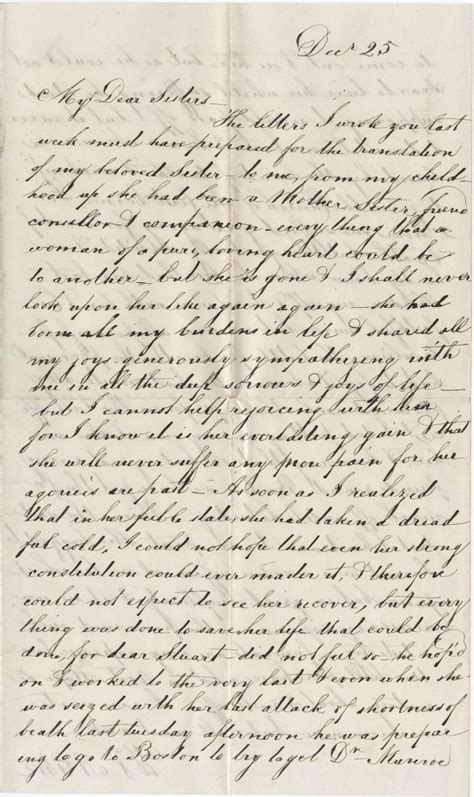 Decr 25
My Dear Sisters—
The letters I wrote you last
week must have prepared for the translation
of my beloved Sister— to me, from my child-
hood up she had been a Mother Sister, friend
consillor & companion— every thing that a
woman of a pure, loving heart could be
to another— but she is gone & I shall never
look upon her like again again— she had
born all my burdens in life & shared all
my joys generously sympathizing with
me in all the deep sorrows & joys of life—
but I cannot help rejoicing with her
for I know it is her everlasting gain & that
she will never suffer any more pain for her
agonies are past— As soon as I realized
that in her feeble state, she had taken a dread
ful cold, I could not hope that even her strong
constitution could ever master it, & therefore
could not expect to see her recover, but every
thing was done to save her life that could be
done, for dear Stuart— did not feel so— he hop'd
on & worked to the very last & even when she
was seized with her last attack of shortness of
beath last tuesday afternoon he was prepar
ing to go to Boston to try to get Dr Munroe